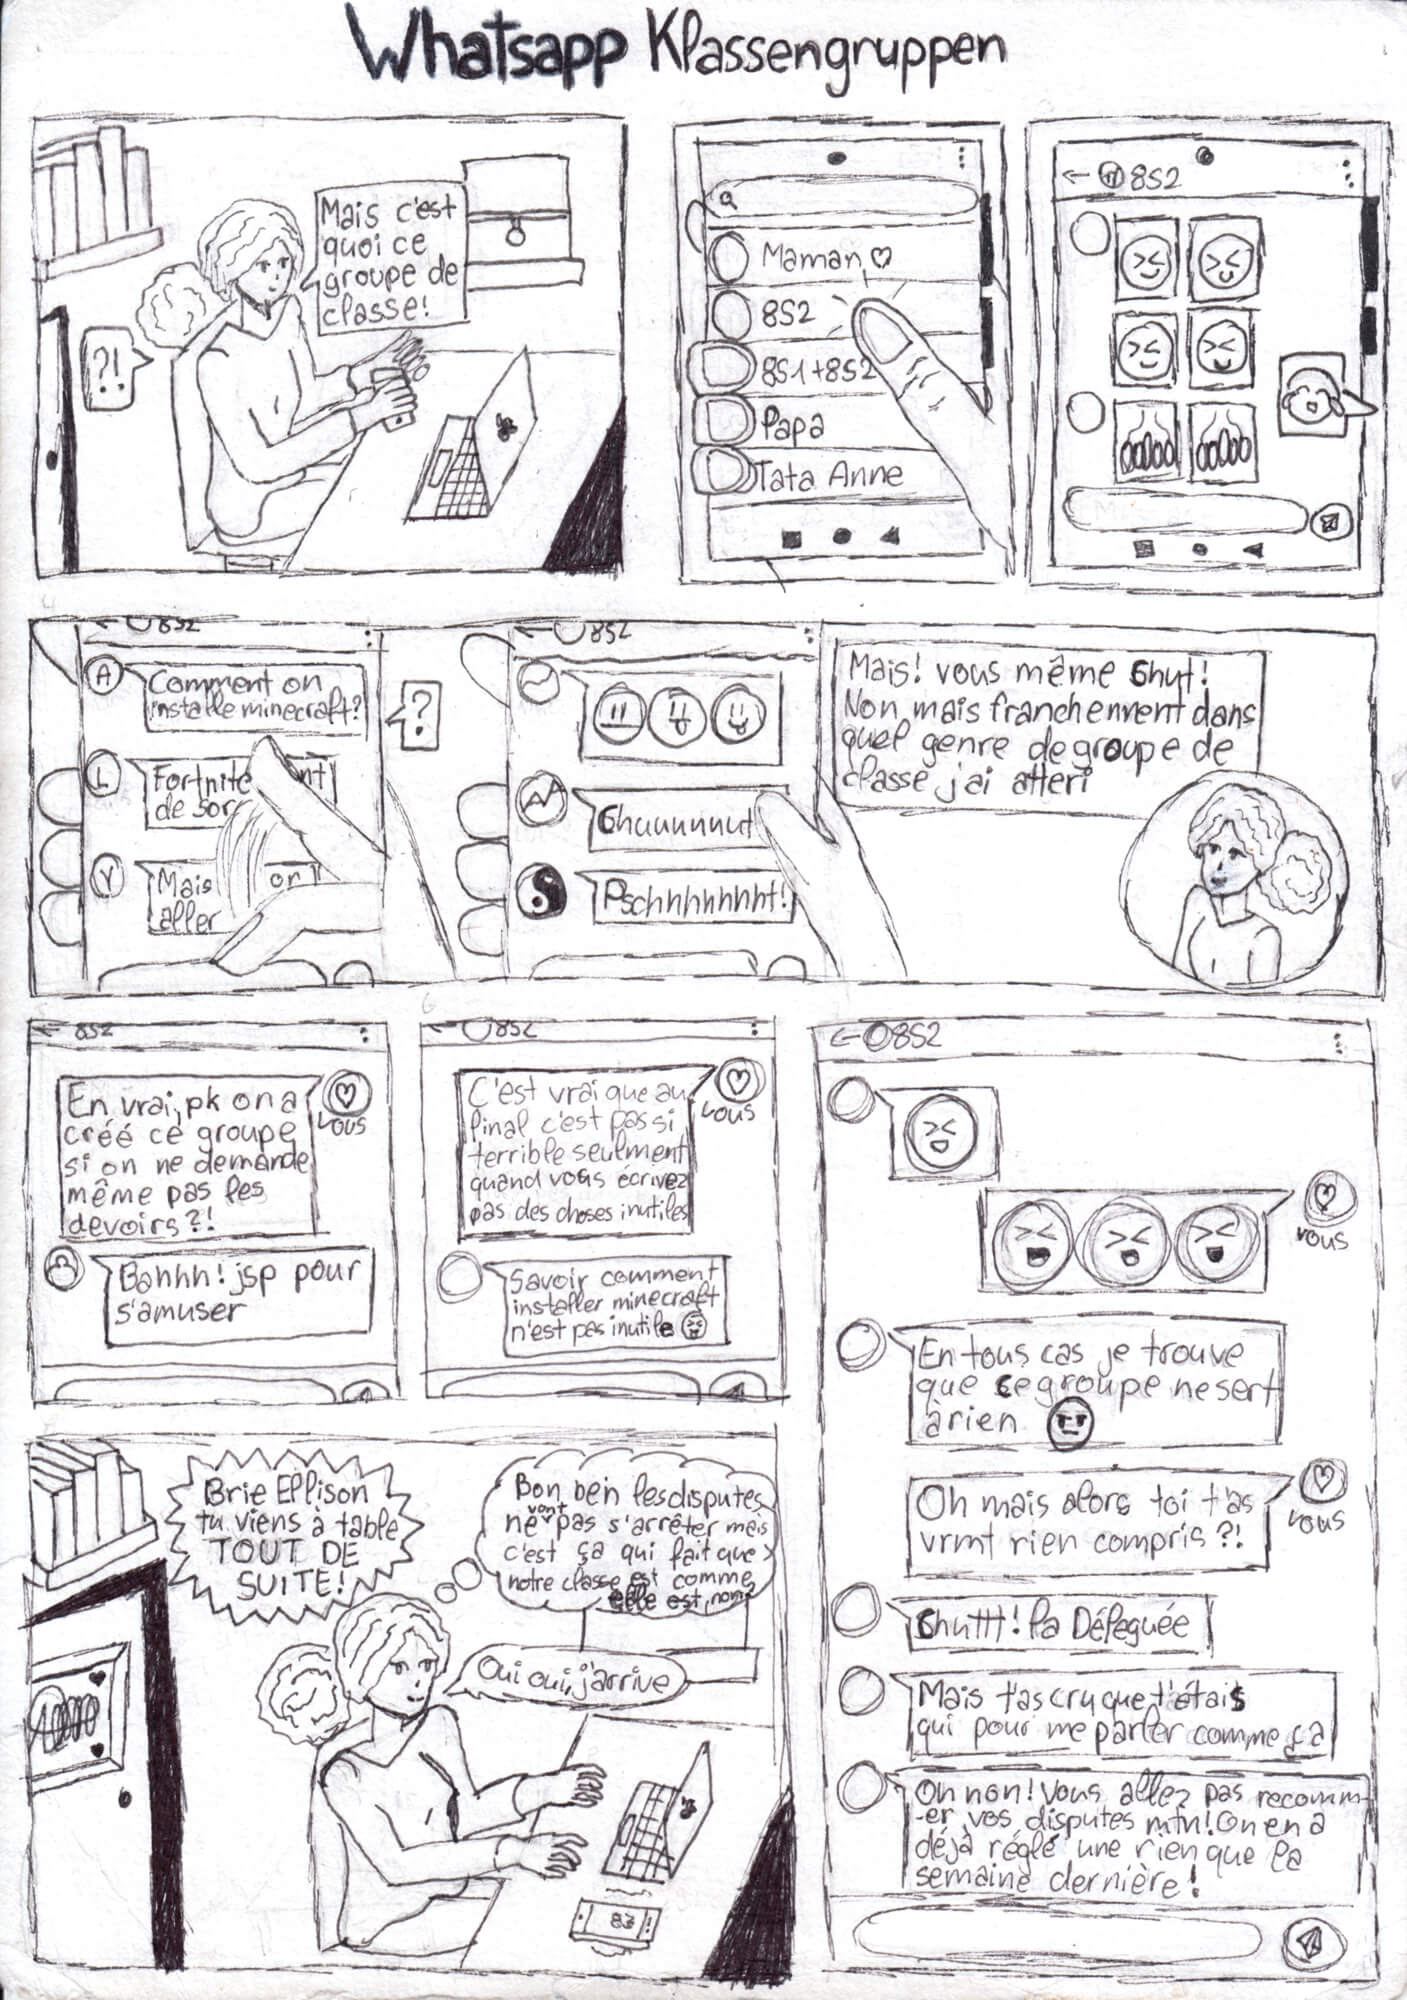 Whatsapp Klassengruppen
Mais c'est
quoi ce
groupe de
classe!
?!
Maman ♡
8S2
8S1+8S2
Papa
Tata Anne
8S2
8S2
A
Comment on
installe minecraft?
L
Fortnite
de sor
Y
Mais
on
aller
?
8S2
Chuuuuuut
Pschhhhhhht!
Mais! vous même Chut!
Non mais franchement dans
quel genre de groupe de
classe j'ai atteri
8S2
En vrai, pk on a
créé ce groupe
si on ne demande
même pas les
devoirs?!
vous
Bahhh! jsp pour
s'amuser
8S2
C'est vrai que au
final c'est pas si
terrible seulment
quand vous écrivez
pas des choses inutiles
vous
Savoir comment
installer minecraft
n'est pas inutile
8S2
vous
En tous cas je trouve
que ce groupe ne sert
à rien
Oh mais alors toi t'as
vrmt rien compris?!
vous
Chuttt! la Déleguée
Mais t'as cru que t'étais
qui pour me parler comme ça
Oh non! Vous allez pas recomm-
-er vos disputes mtn! On en a
déjà réglé une rien que la
semaine dernière!
Brie Ellison
tu viens à table
TOUT DE
SUITE!
Bon ben les disputes
ne vont pas s'arrêter mais
c'est ça qui fait que
notre classe est comme
elle est, non?
Oui oui, j'arrive
83